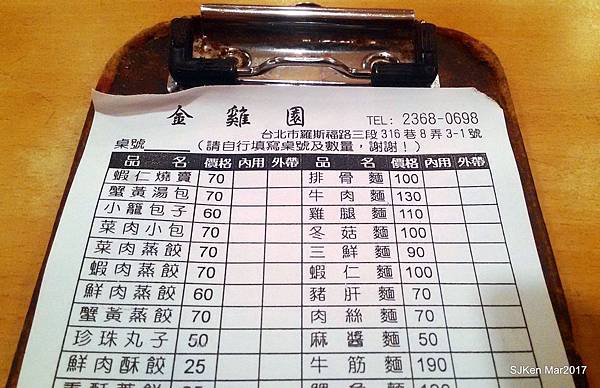 金雞園 TEL: 2368-0698
台北市羅斯福路三段316巷8弄3-1號
桌號 (請自行填寫桌號及數量,謝謝!)
品名 價格 內用 外帶 品名 價格 內用 外帶
蝦仁燒賣 70 排骨麵 100
蟹黃湯包 70 牛肉麵 130
小籠包子 60 雞腿麵 110
菜肉小包 70 冬菇麵 100
菜肉蒸餃 70 三鮮麵 90
蝦肉蒸餃 70 蝦仁麵 100
鮮肉蒸餃 60 豬肝麵 70
蟹黃蒸餃 70 肉絲麵 70
珍珠丸子 50 麻醬麵 50
鮮肉酥餃 25 牛筋麵 190
SJKen Mar2017